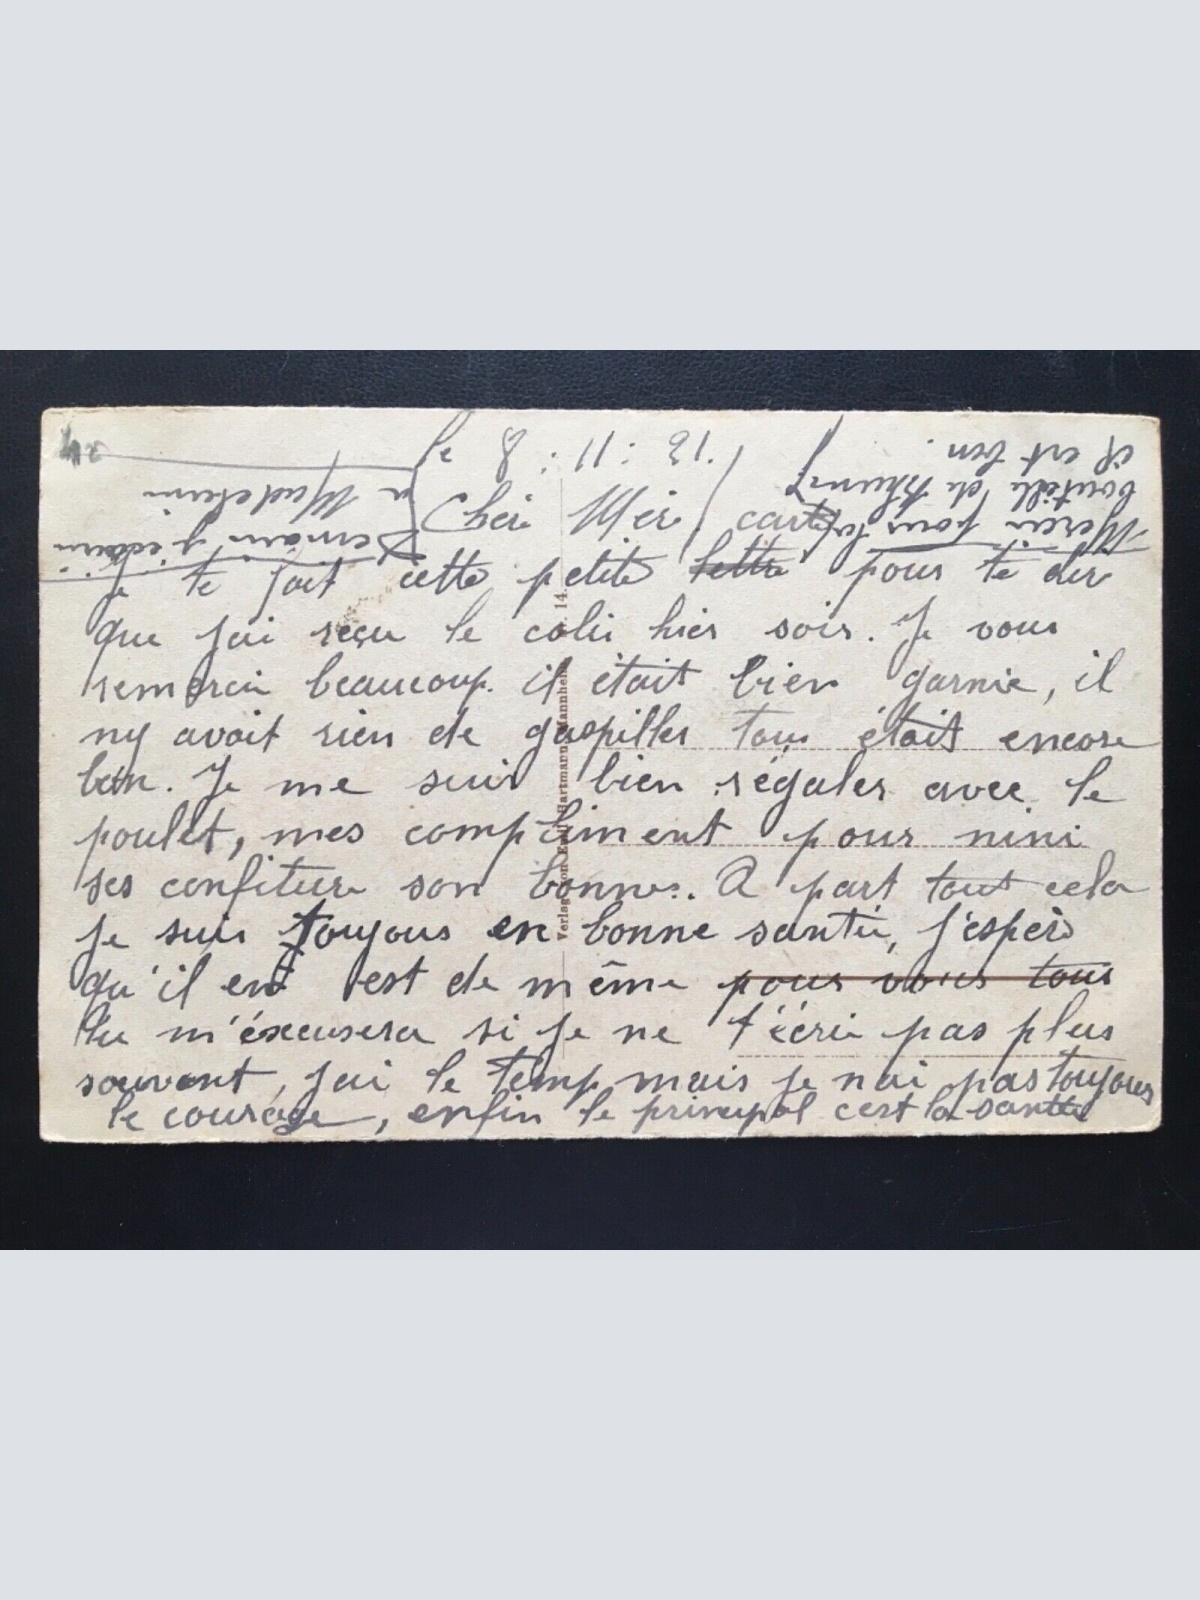 le 8 : 11 : 21.
Cher Mèr
carte
Je te fait cette petite lettre pour te dir
que jai reçu le colis hier soir. Je vous
remerci beaucoup. il était bien garnie, il
ny avait rien de gaspiller tous était encore
bon. Je me suis bien régaler avec le
poulet, mes compliment pour nini
ses confiture son bonnes. A part tout cela
je suis toujous en bonne santée, j'espèr
qu'il ent est de même pour vous tous
tu m'éxcusera si je ne t'écri pas plus
souvent, jai le temp mais je nai pas toujours
le courage, enfin le principal cest la santée
Merci pour la
bouteille de Rhum
il est bon.
Demain j'écrirai
a Madeleine
Verlag von Emil Hartmann, Mannheim 14.